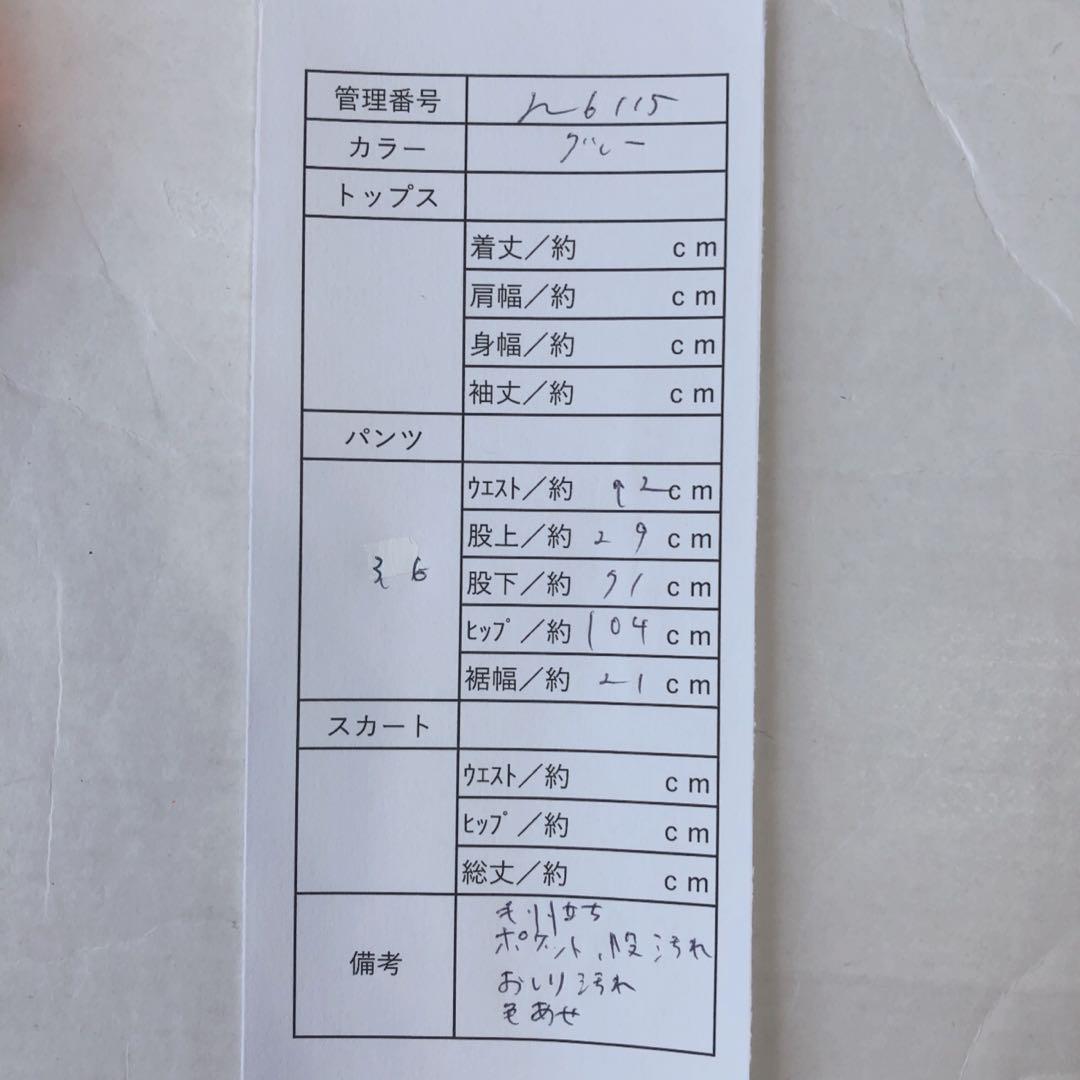 管理番号 n6115
カラー グレー
トップス
着丈／約 cm
肩幅／約 cm
身幅／約 cm
袖丈／約 cm
パンツ
36
ウエスト／約 92cm
股上／約 29cm
股下／約 91cm
ヒップ／約 104cm
裾幅／約 21cm
スカート
ウエスト／約 cm
ヒップ／約 cm
総丈／約 cm
備考
毛羽立ち
ポケット、股汚れ
おしり汚れ
色あせ